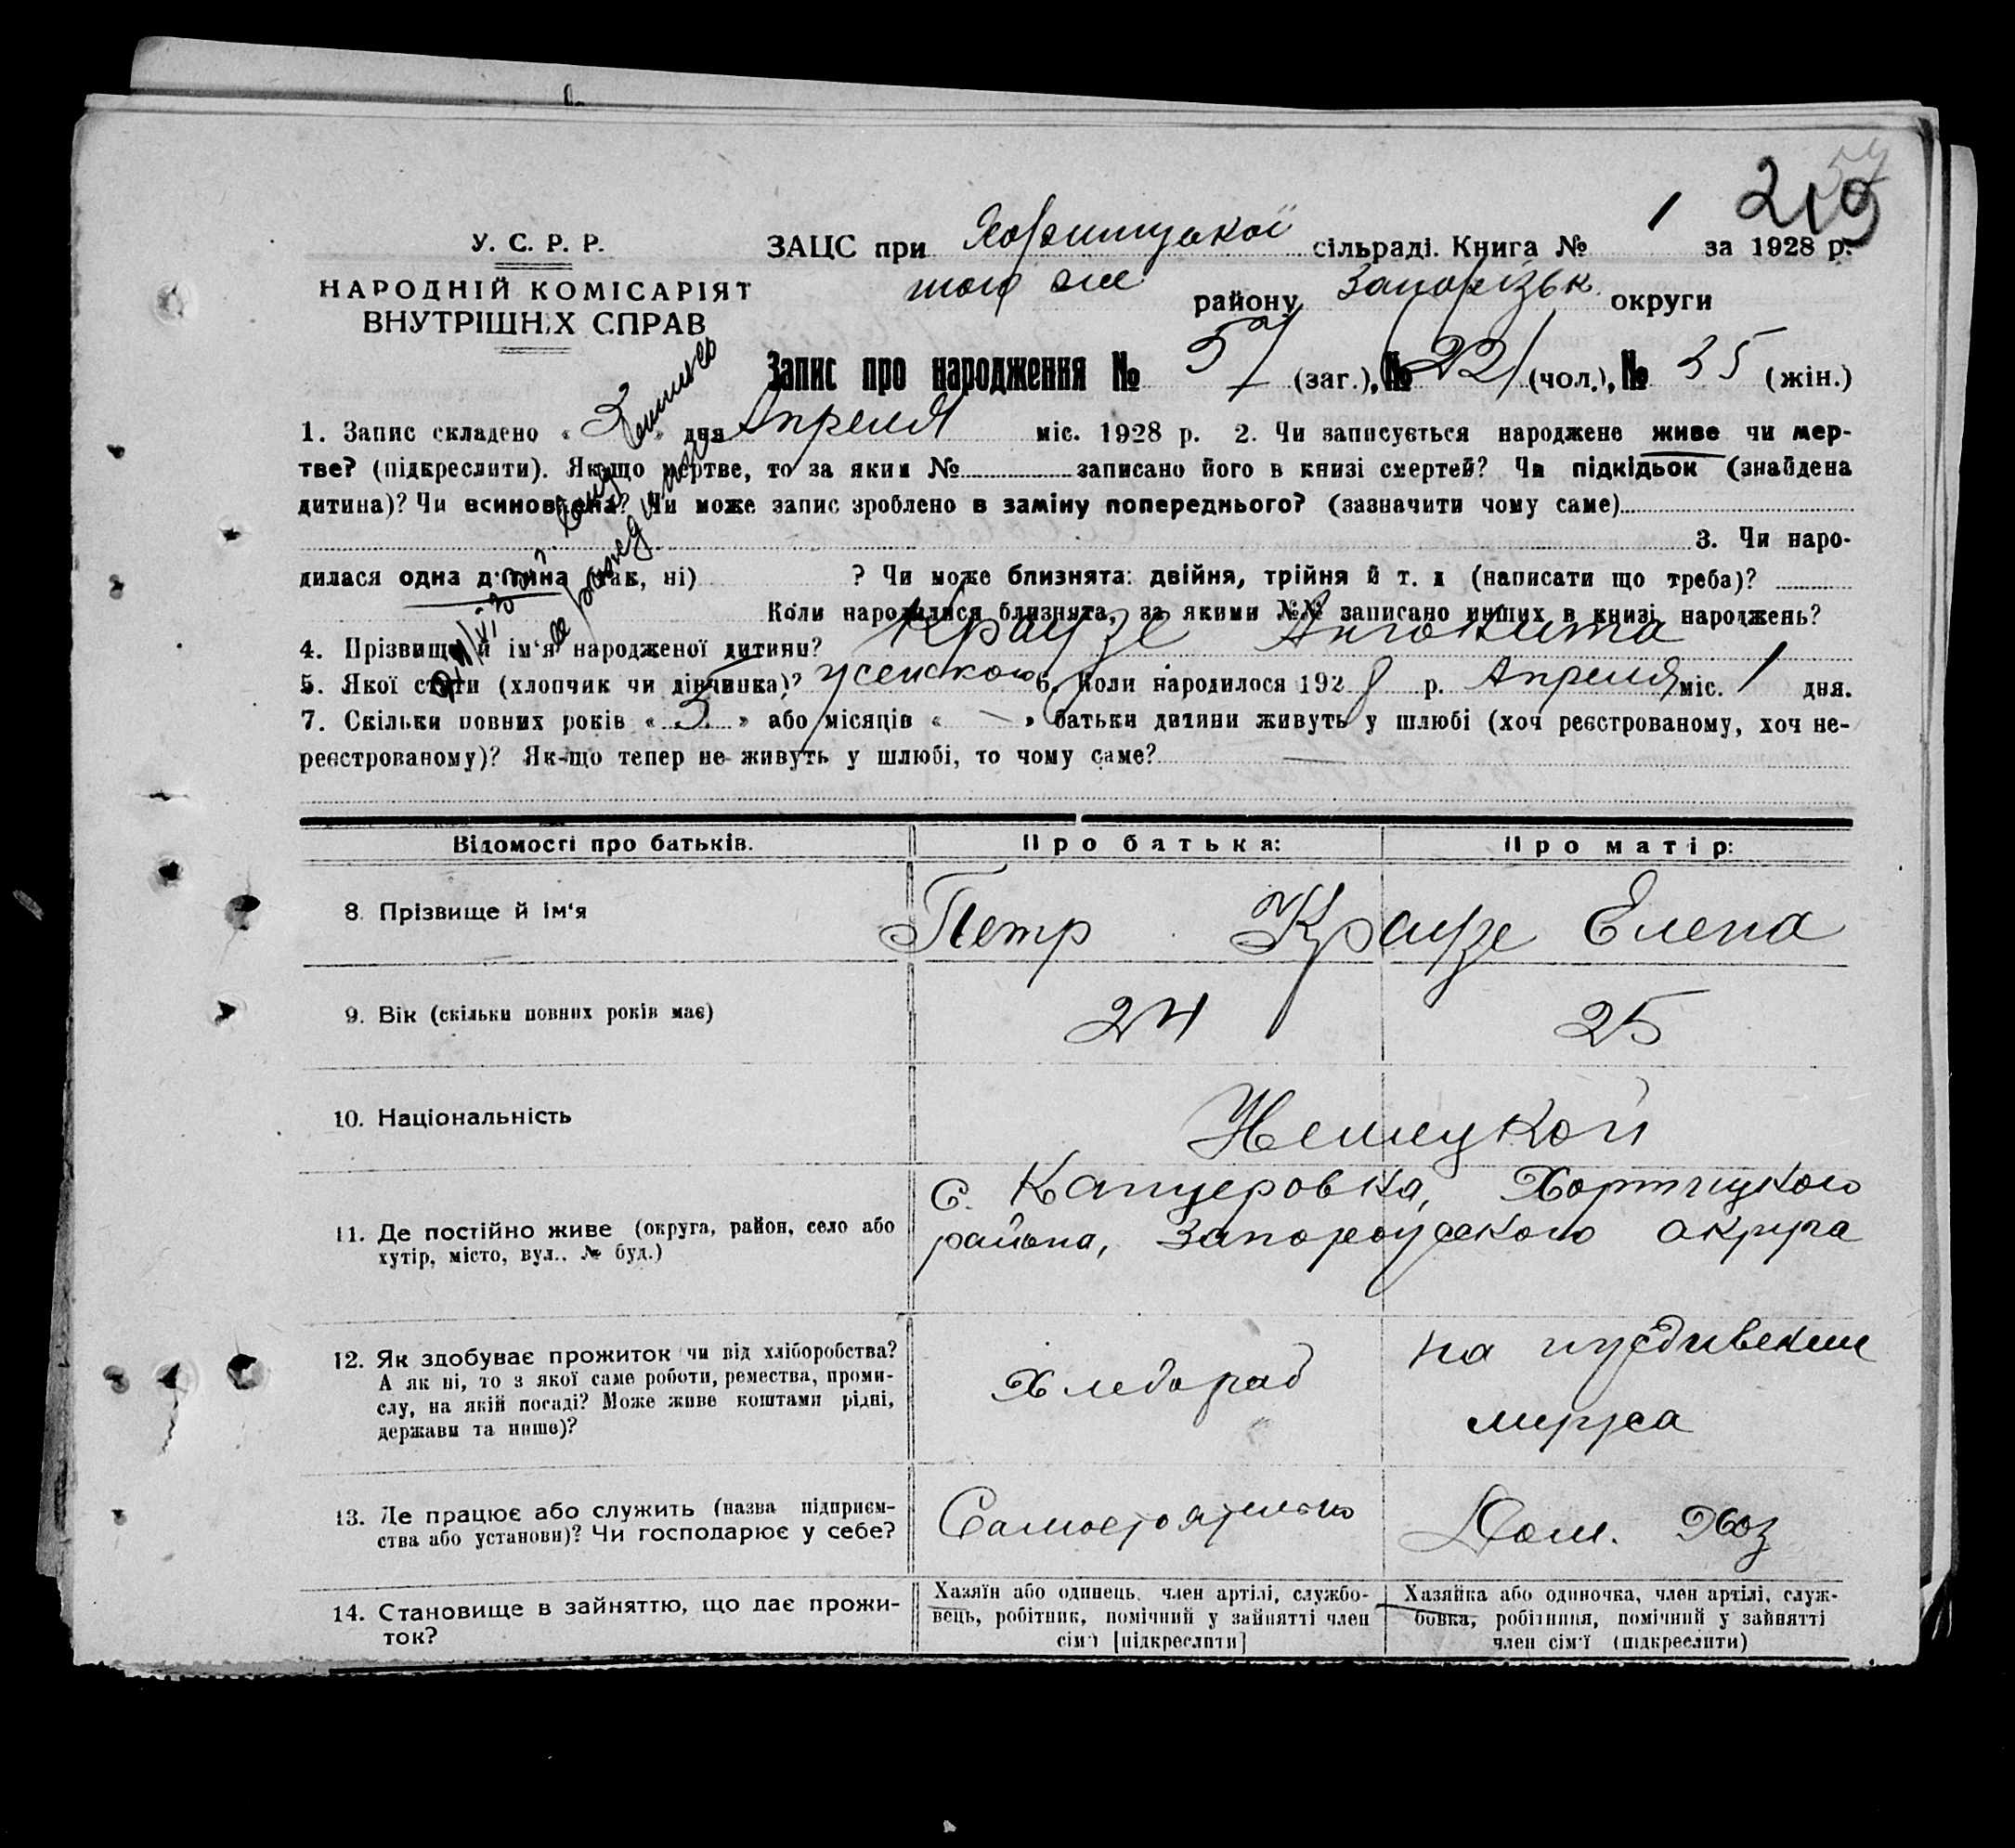 219
57
У. С. Р. Р.
НАРОДНІЙ КОМІСАРІЯТ
ВНУТРІШНІХ СПРАВ
ЗАЦС при Хортицької сільраді. Книга № 1 за 1928 р.
того же району Запорізьк округи
Запис про народження № 57 (заг.), № 22 (чол.), № 35 (жін.)
1. Запис складено « 3 » дня Апреля міс. 1928 р. 2. Чи записується народжене живе чи мер-
тве? (підкреслити). Як-що мертве, то за яким № записано його в книзі смертей? Чи підкідьок (знайдена
дитина)? Чи всиновлена? Чи може запис зроблено в заміну попереднього? (зазначити чому саме)
3. Чи наро-
дилася одна дитина (так, ні) ? Чи може близнята: двійня, трійня й т. д (написати що треба)?
Коли народилися близнята, за якими №№ записано инших в книзі народжень?
4. Прізвище й ім'я народженої дитини? Краузе Антонита
5. Якої стати (хлопчик чи дівчинка)? женского 6. Коли народилося 1928 р. Апреля міс. 1 дня.
7. Скільки повних років « 5 » або місяців « — » батьки дитини живуть у шлюбі (хоч реєстрованому, хоч не-
реєстрованому)? Як-що тепер не живуть у шлюбі, то чому саме? —
Відомості про батьків. Про батька: Про матір:
8. Прізвище й ім'я Петр Краузе Елена
9. Вік (скільки повних років має) 24 25
10. Національність Немецкой
11. Де постійно живе (округа, район, село або
хутір, місто, вул.. № буд.)
С. Канцеровка, Хортицкого
района, Запорожского округа
12. Як здобуває прожиток чи від хліборобства?
А як ні, то з якої саме роботи, ремества, проми-
слу, на якій посаді? Може живе коштами рідні,
держави та инше)?
Хлебороб
на иждивении
мужа
13. Де працює або служить (назва підприєм-
ства або установи)? Чи господарює у себе?
Самостоятельно
Дом. Хоз
14. Становище в зайняттю, що дає прожи-
ток?
Хазяїн або одинець, член артілі, службо-
вець, робітник, помічний у зайнятті член
сім'ї [підкреслити]
Хазяйка або одиночка, член артілі, служ-
бовка, робітниця, помічний у зайнятті
член сім'ї (підкреслити)